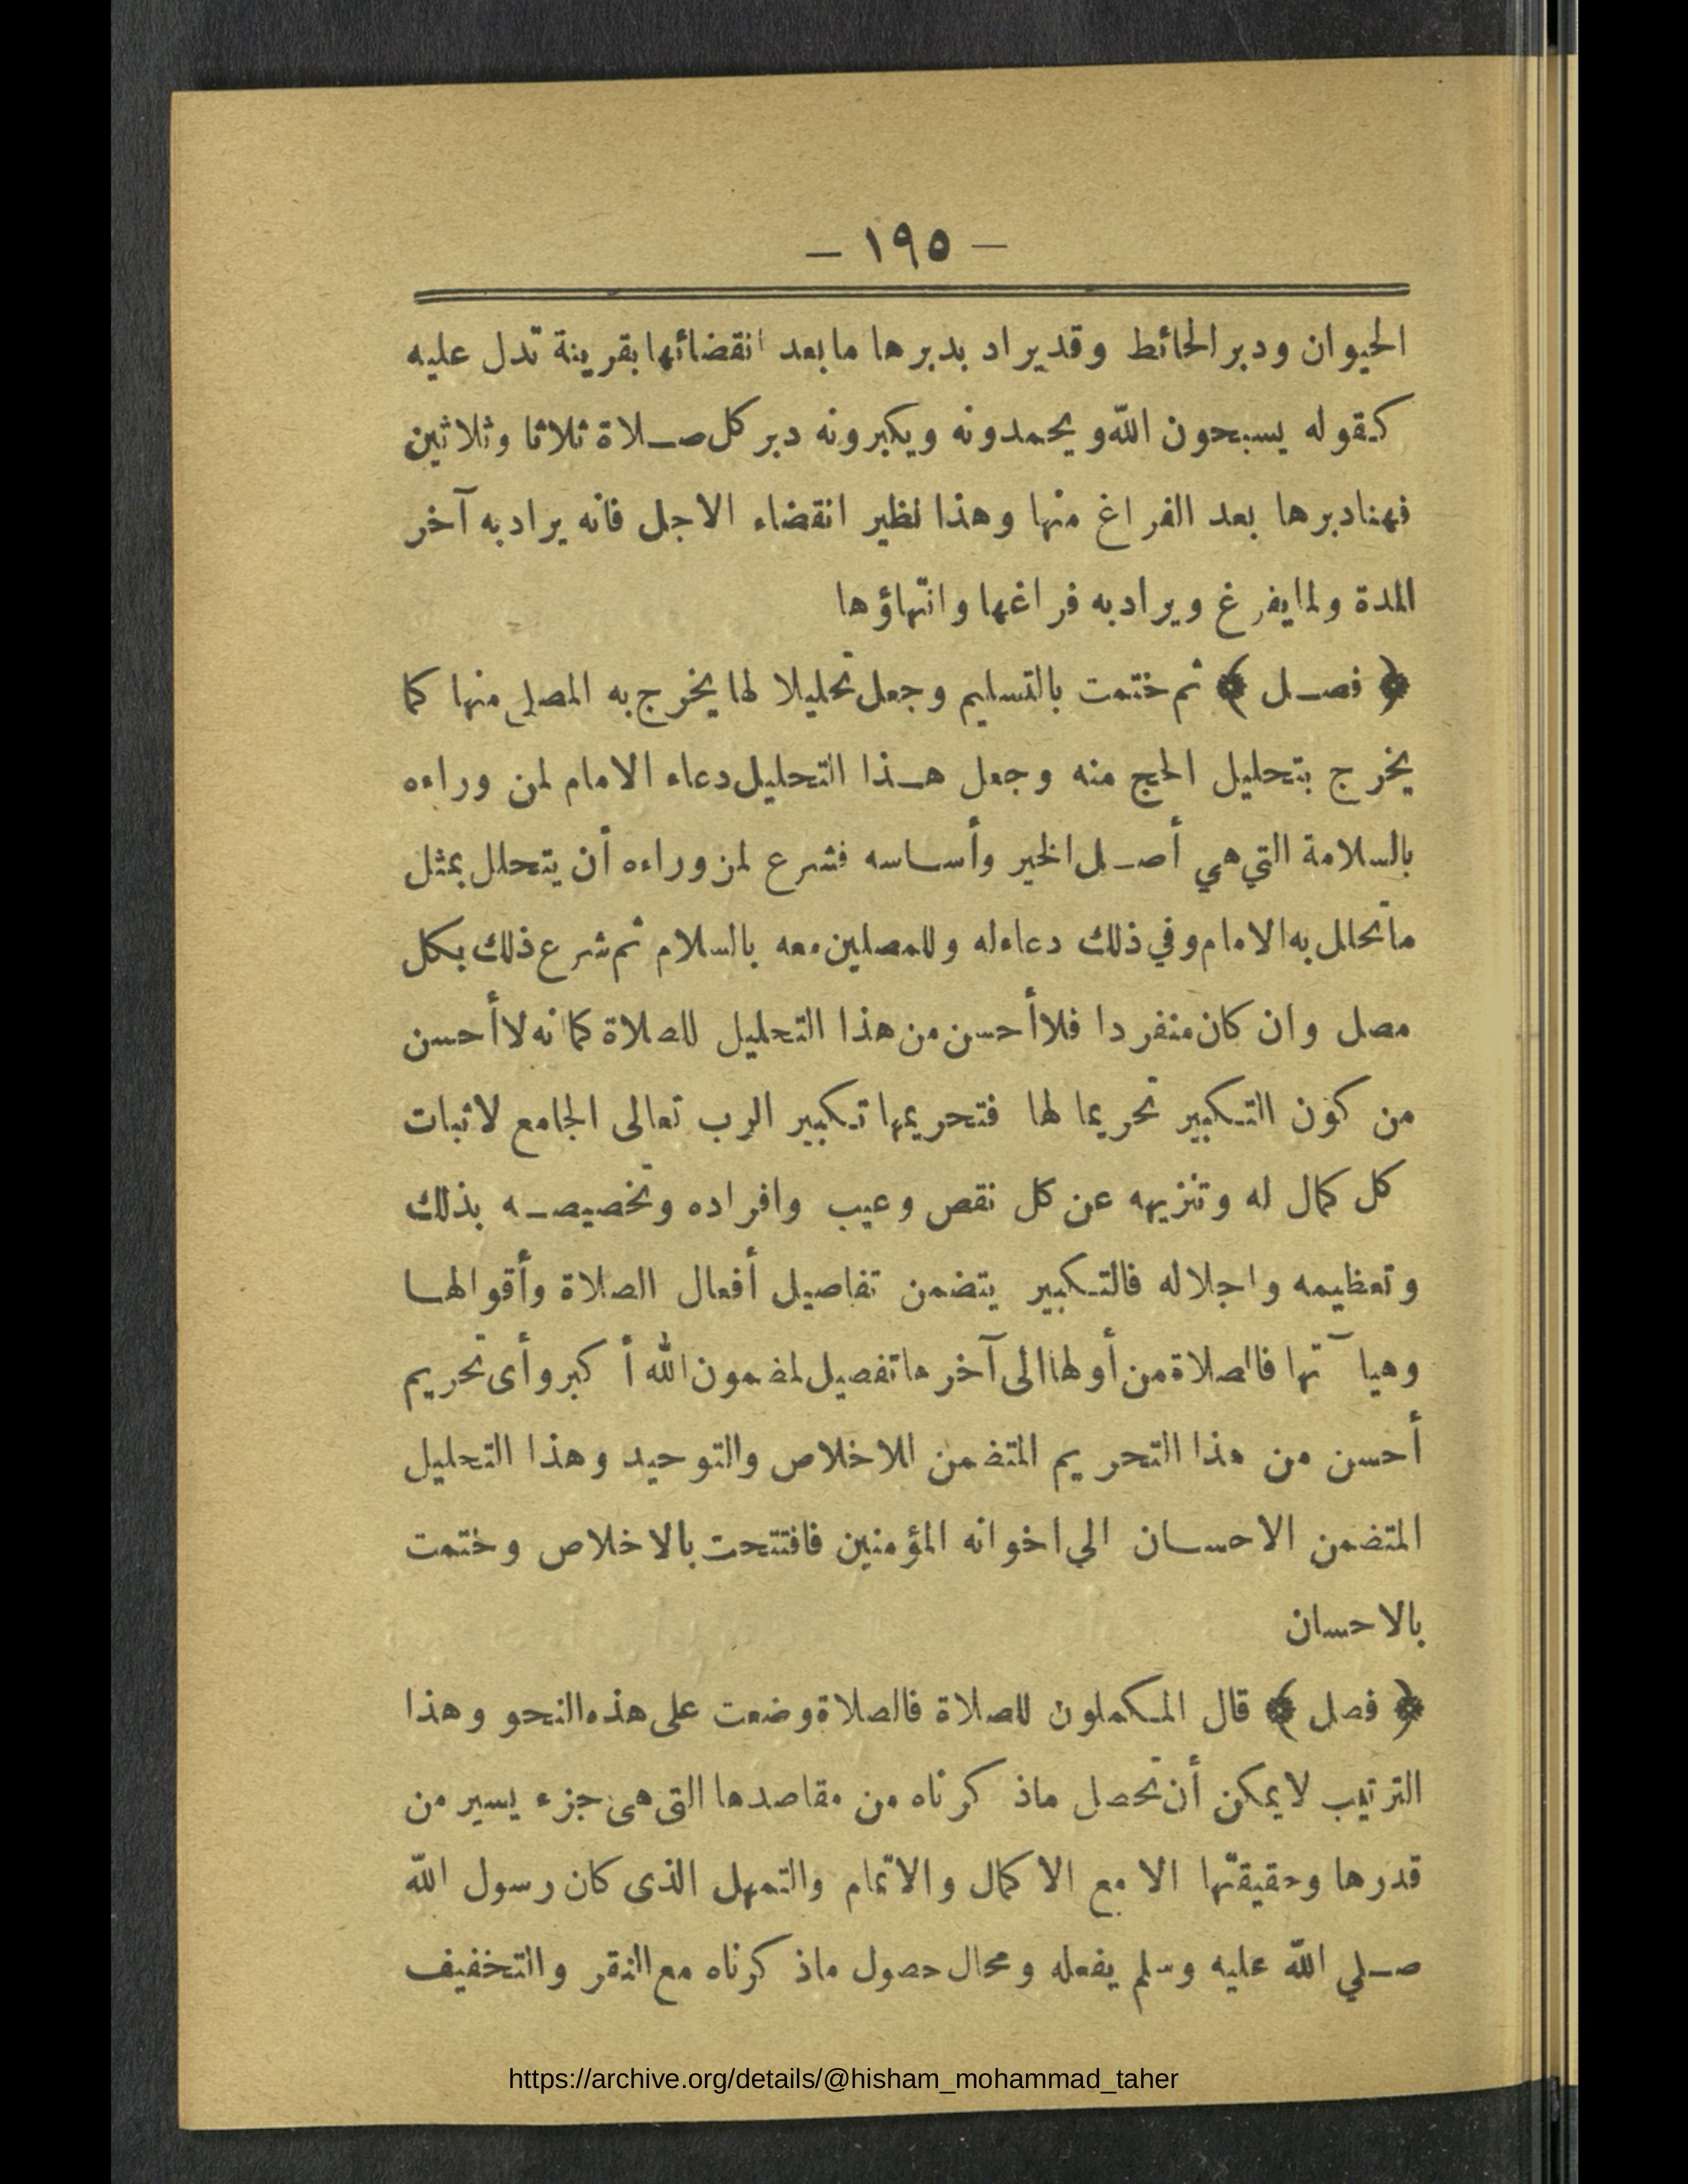 — ١٩٥ —
الحيوان ودبر الحائط وقد يراد بدبرها ما بعد انقضائها بقرينة تدل عليه
كقوله يسبحون الله ويحمدونه ويكبرونه دبر كل صلاة ثلاثا وثلاثين
فهنا دبرها بعد الفراغ منها وهذا نظير انقضاء الاجل فانه يراد به آخر
المدة ولما يفرغ ويراد به فراغها وانتهاؤها
﴿ فصل ﴾ ثم ختمت بالتسليم وجعل تحليلا لها يخرج به المصلي منها كما
يخرج بتحليل الحج منه وجعل هذا التحليل دعاء الامام لمن وراءه
بالسلامة التي هي أصل الخير وأساسه فشرع لمن وراءه أن يتحلل بمثل
ما تحلل به الامام وفي ذلك دعاء له وللمصلين معه بالسلام ثم شرع ذلك بكل
مصل وان كان منفردا فلا أحسن من هذا التحليل للصلاة كما انه لا أحسن
من كون التكبير تحريما لها فتحريمها تكبير الرب تعالى الجامع لاثبات
كل كمال له وتنزيهه عن كل نقص وعيب وافراده وتخصيصه بذلك
وتعظيمه واجلاله فالتكبير يتضمن تفاصيل أفعال الصلاة وأقوالها
وهيآتها فالصلاة من أولها الى آخرها تفصيل لمضمون الله أكبر وأى تحريم
أحسن من هذا التحريم المتضمن للاخلاص والتوحيد وهذا التحليل
المتضمن الاحسان الي اخوانه المؤمنين فافتتحت بالاخلاص وختمت
بالاحسان
﴿ فصل ﴾ قال المكملون للصلاة فالصلاة وضعت على هذه النحو وهذا
الترتيب لا يمكن أن تحصل ماذكرناه من مقاصدها التى هى جزء يسير من
قدرها وحقيقتها الا مع الاكمال والاتمام والتمهل الذى كان رسول الله
صلي الله عليه وسلم يفعله ومحال حصول ماذكرناه مع النقر والتخفيف
https://archive.org/details/@hisham_mohammad_taher